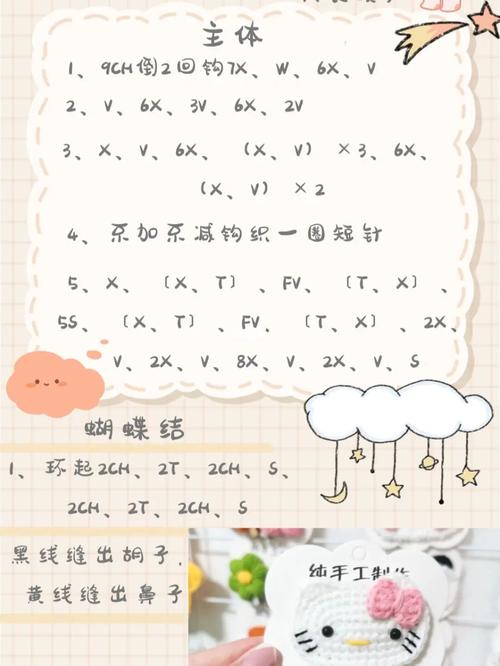 主体
1、9CH倒2回钩7X、W、6X、V
2、V、6X、3V、6X、2V
3、X、V、6X、（X、V）×3、6X、
（X、V）×2
4、不加不减钩织一圈短针
5、X、〔X、T〕、FV、〔T、X〕、
5S、〔X、T〕、FV、〔T、X〕、2X、
V、2X、V、8X、V、2X、V、S
蝴蝶结
1、环起2CH、2T、2CH、S、
2CH、2T、2CH、S
黑线缝出胡子,
黄线缝出鼻子
纯手工制作